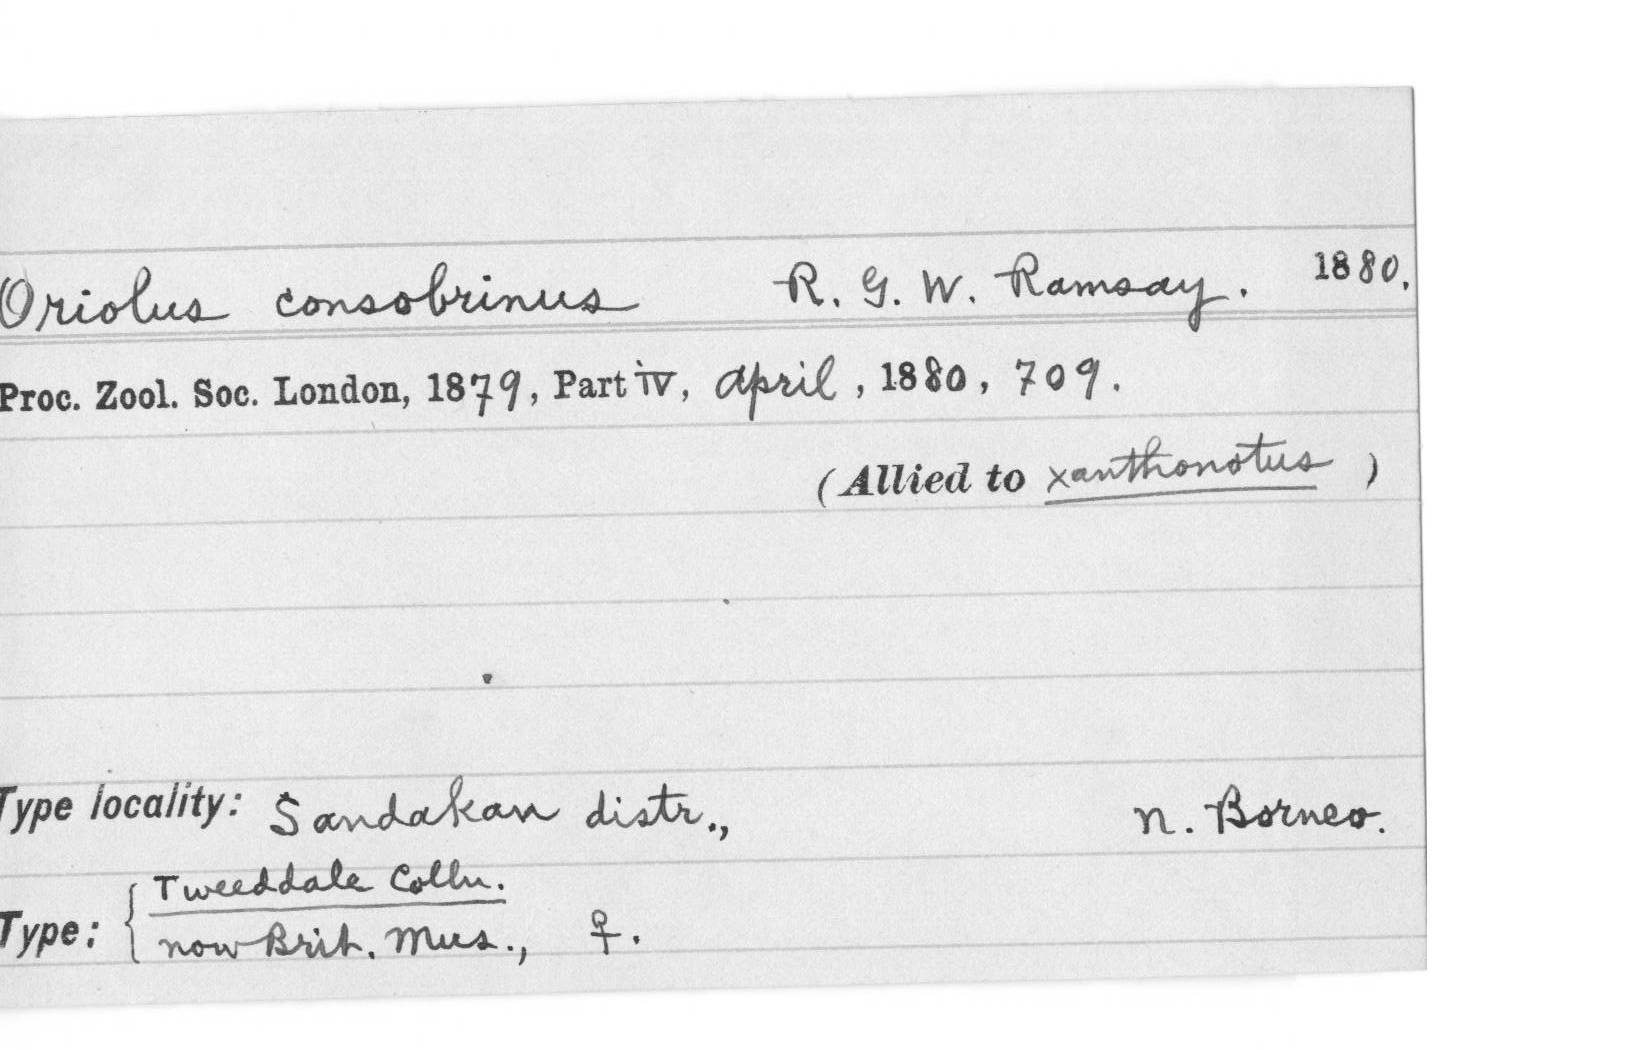 Oriolus consobrinus R. G. W. Ramsay. 1880.
Proc. Zool. Soc. London, 1879, Part iv, April, 1880, 709.
(Allied to xanthonotus)
Type locality: Sandakan distr., N. Borneo.
Type: { Tweeddale Colln.
now Brit. Mus., ♀.